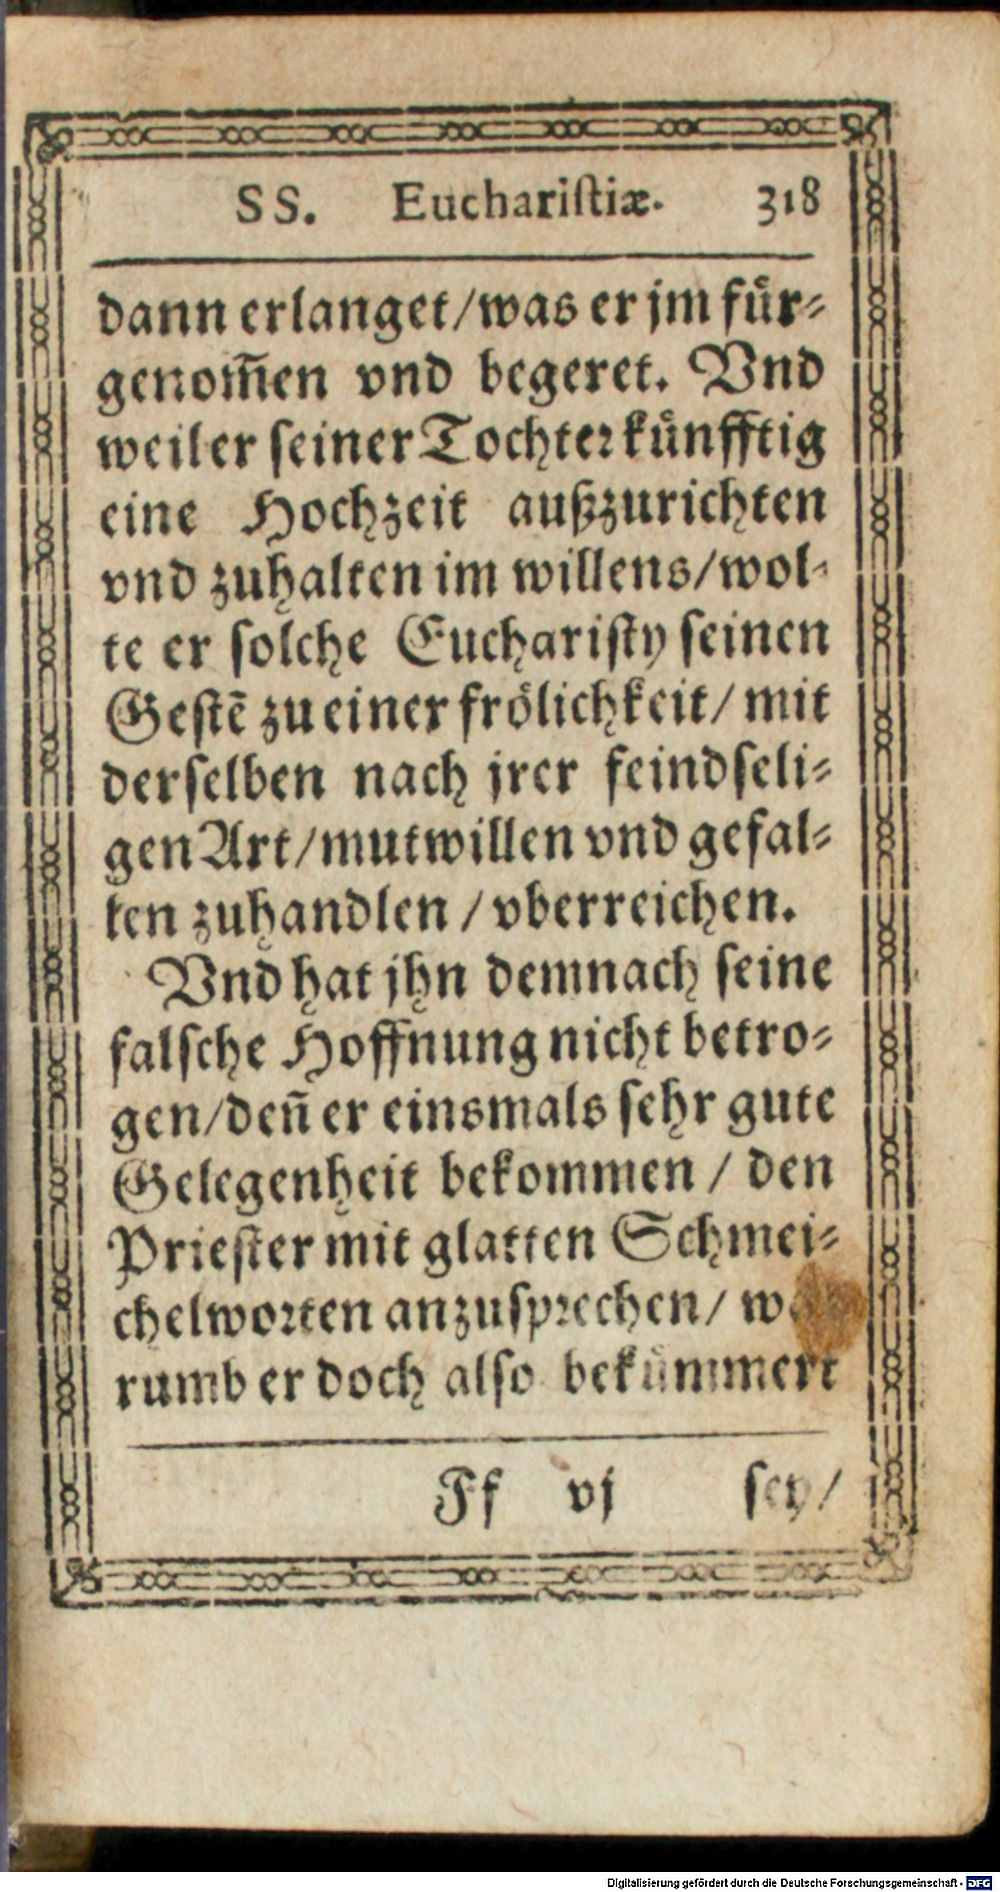 SS. Euchariſtiæ. 318
dann erlanget/was er jm fuͤr⸗
genom̃en vnd begeret. Vnd
weil er ſeiner Tochter kuͤnfftig
eine Hochzeit außzurichten
vnd zuhalten im willens/wol⸗
te er ſolche Euchariſty ſeinen
Geſtẽ zu einer froͤlichkeit/ mit
derſelben nach jrer feindſeli⸗
gen Art/mutwillen vnd gefal⸗
len zuhandlen / vberreichen.
Vnd hat jhn demnach ſeine
falſche Hoffnung nicht betro⸗
gen/deñ er einsmals ſehr gute
Gelegenheit bekommen / den
Prieſter mit glatten Schmei⸗
chelworten anzuſprechen/
rumb er doch alſo bekuͤmmert
Ff vj ſey/
Digitalisierung gefördert durch die Deutsche Forschungsgemeinschaft - DFG